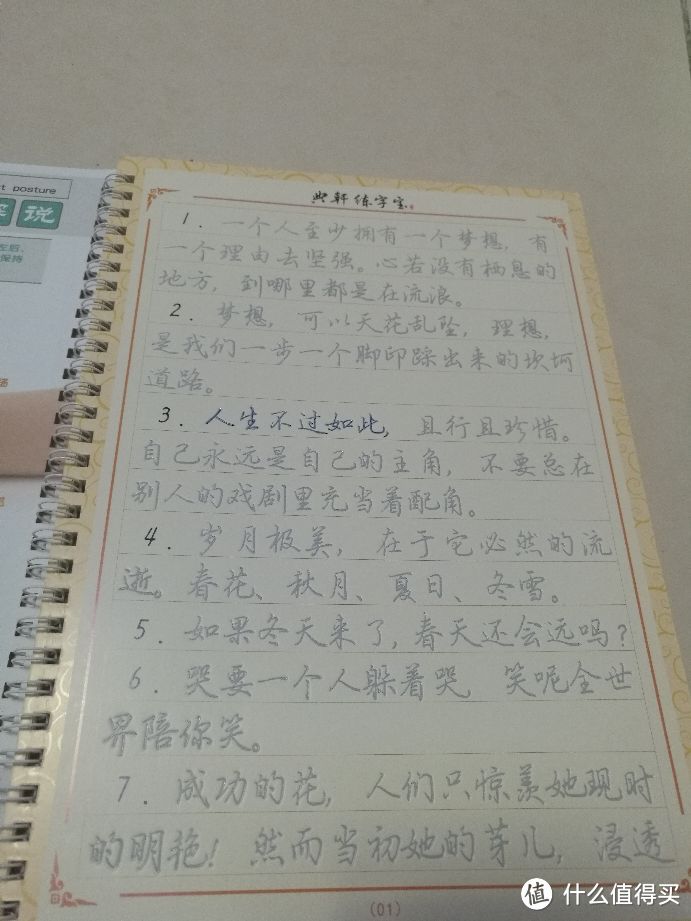 t posture
说
左后,
保持
典轩练字宝
1. 一个人至少拥有一个梦想,有
一个理由去坚强。心若没有栖息的
地方,到哪里都是在流浪。
2. 梦想,可以天花乱坠,理想,
是我们一步一个脚印踩出来的坎坷
道路。
3. 人生不过如此,且行且珍惜。
自己永远是自己的主角,不要总在
别人的戏剧里充当着配角。
4. 岁月极美,在于它必然的流
逝。春花、秋月、夏日、冬雪。
5. 如果冬天来了,春天还会远吗?
6. 哭要一个人躲着哭 笑呢全世
界陪你笑。
7. 成功的花,人们只惊羡她现时
的明艳!然而当初她的芽儿,浸透
(01)
值 什么值得买